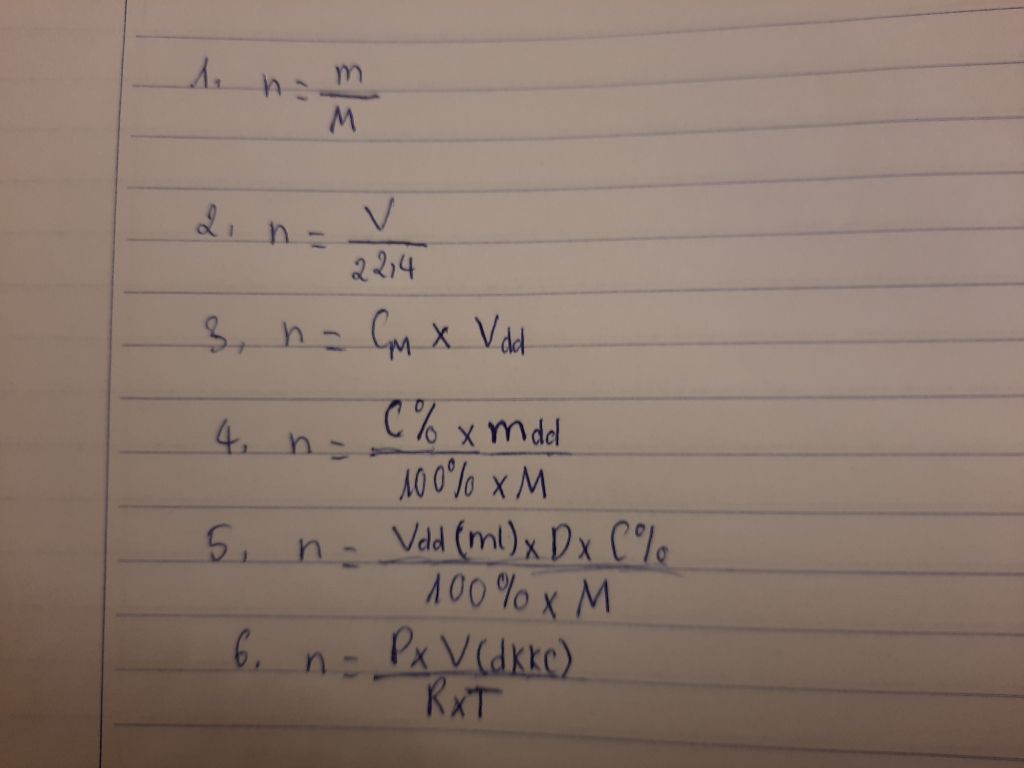 1. n = m / M
2. n = V / 22,4
3. n = CM x Vdd
4. n = C% x mdd / 100% x M
5. n = Vdd (ml) x D x C% / 100% x M
6. n = P x V(dkkc) / R x T